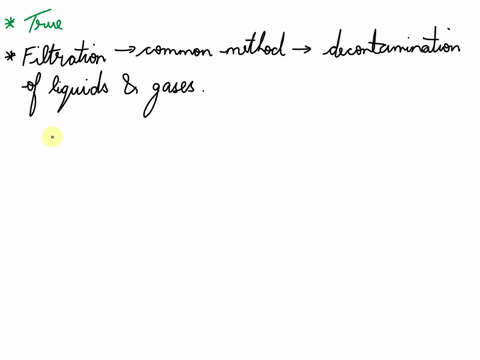 * True
* Filtration → common method → decontamination
of liquids & gases.